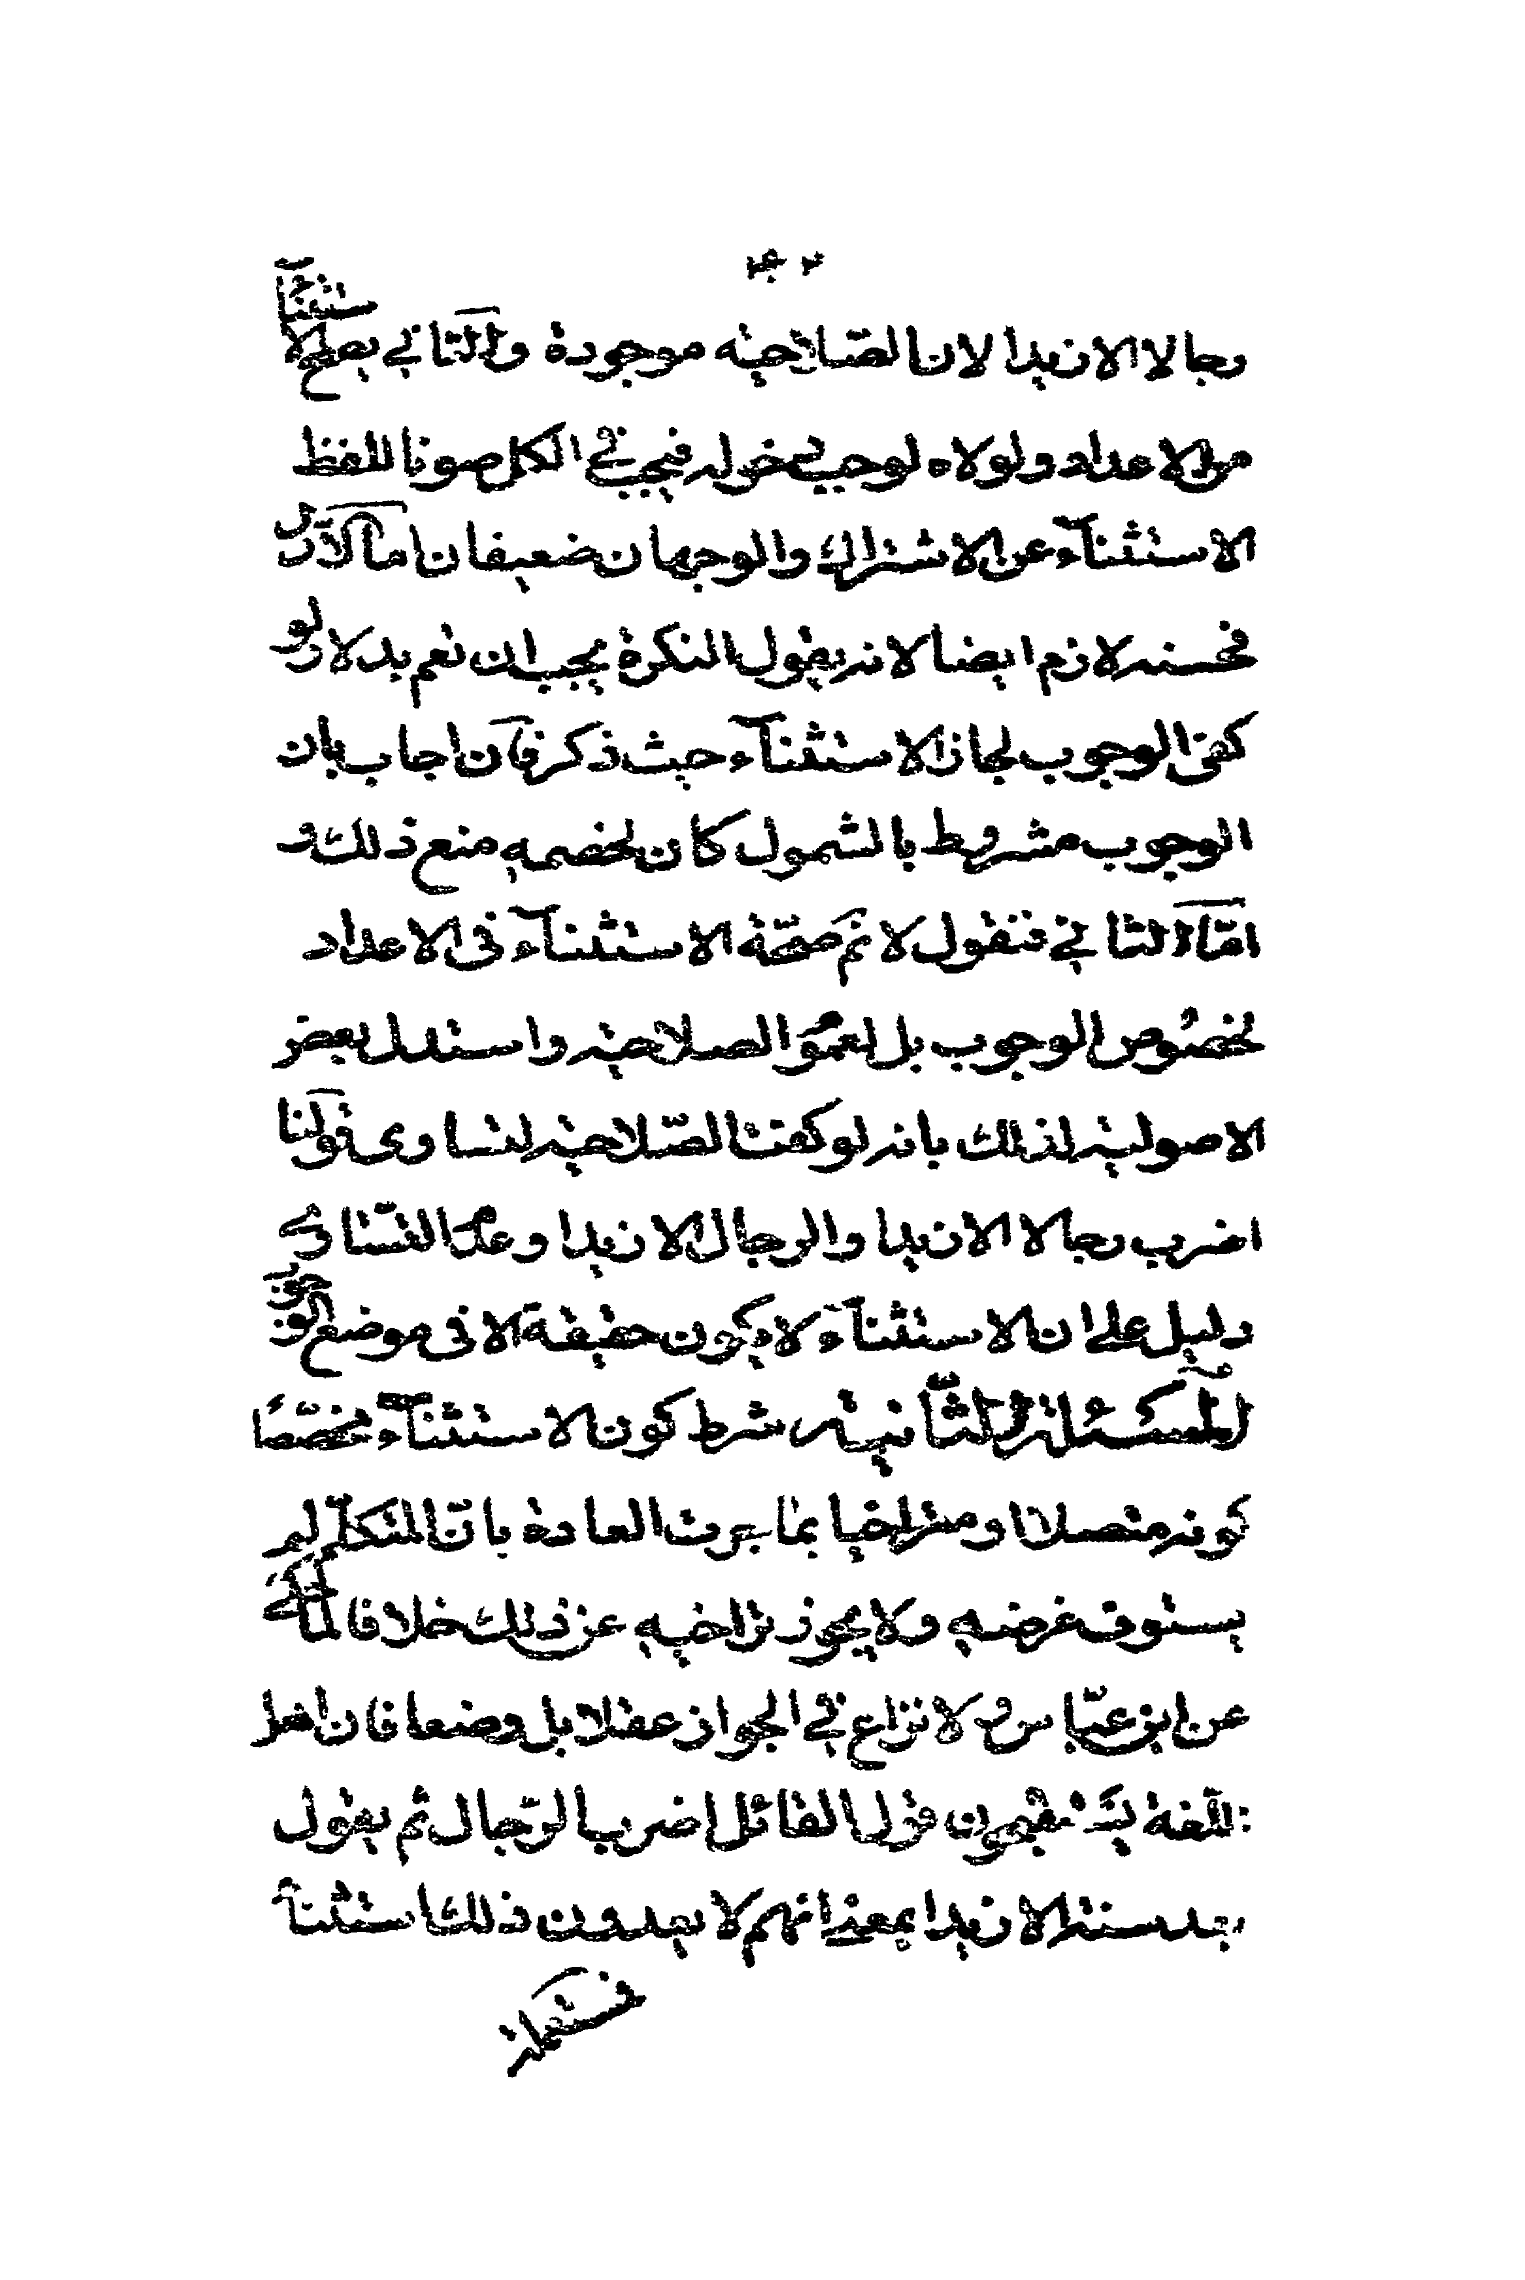 رجالا الا زيدا لان الصّلاحيّة موجودة والثاني يصحّ الاستثناء
من الاعداد ولولاه لوجب دخوله فيجب في الكل صونا للفظ
الاستثناء عن الاشتراك والوجهان ضعيفان اما الاول
فحسنه لازم ايضا لانه يقول النكرة يجب ان تعم بدلا ولو
كفى الوجوب لجاز الاستثناء حيث ذكر فان اجاب بان
الوجوب مشروط بالشمول كان لخصمه منع ذلك و
امّا الثاني فنقول لا نم صحّة الاستثناء في الاعداد
لخصوص الوجوب بل لعموم الصلاحية واستدل بعض
الاصولية لذلك بانه لو كفت الصّلاحية لتساوى قولنا
اضرب رجالا الا زيدا والرجال الا زيدا وعدم التّساوى
دليل على ان الاستثناء لا يكون حقيقة الا في موضع الوجوب
المسئلة الثّانية شرط كون الاستثناء مخصّصا
كونه متصلا او متراخيا بما جرت العادة بانّ المتكلّم لم
يستوف غرضه ولا يجوز تراخيه عن ذلك خلافا لما حكى
عن ابن عبّاس ولا نزاع في الجواز عقلا بل وضعا فان اهل
اللّغة يستقبحون قول القائل اضرب الرّجال ثم يقول
بعد سنة الا زيدا بمعنى انهم لا يعدون ذلك استثناء